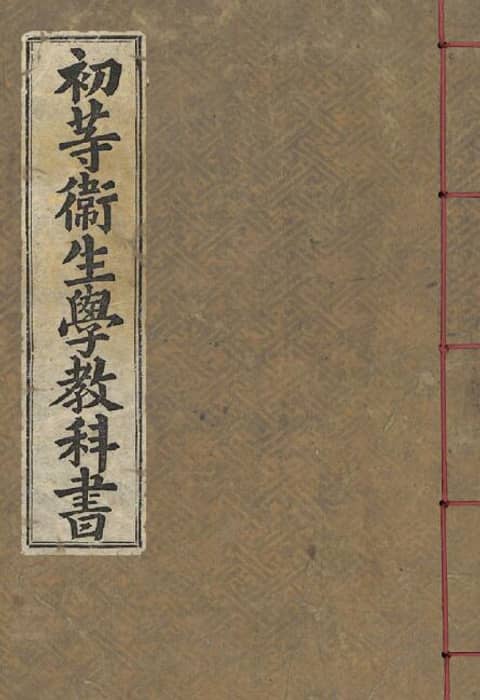 初等衛生學教科書